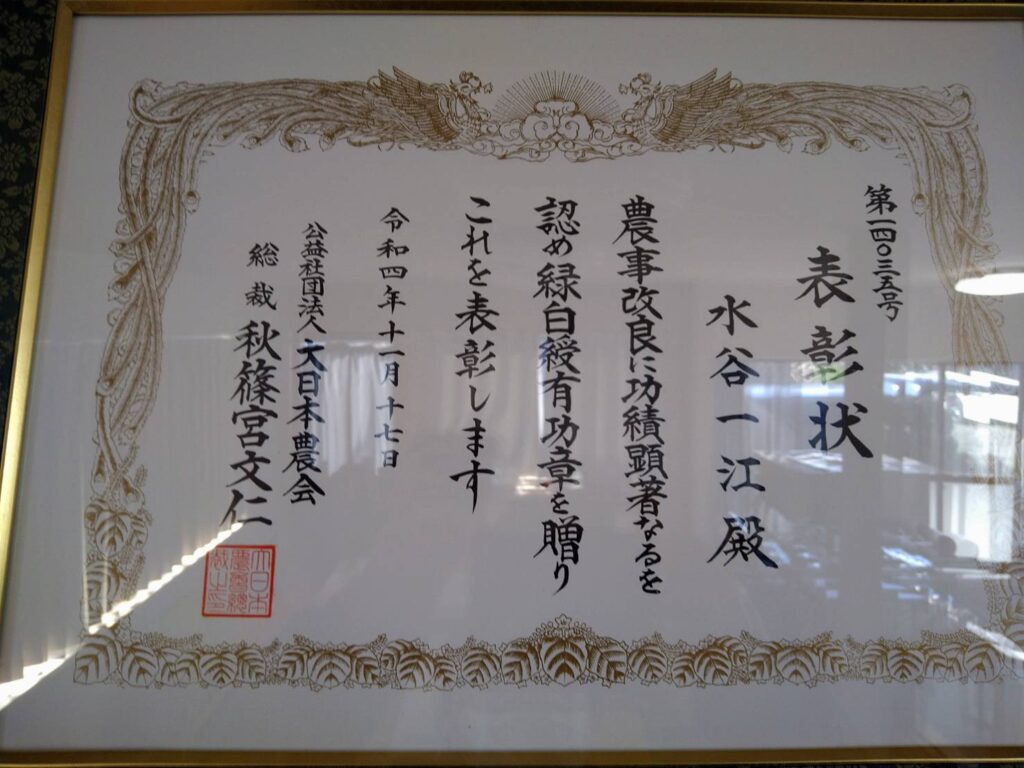 第一四〇三五号
表彰状
水谷一江殿
農事改良に功績顕著なるを
認め緑白綬有功章を贈り
これを表彰します
令和四年十一月十七日
公益社団法人大日本農会
総裁秋篠宮文仁
大日本
農会総
裁之印